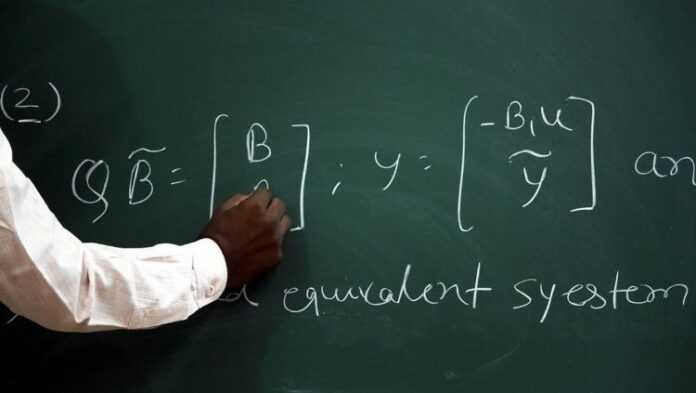 (2)
Q B̃ = [ B ] ; y = [ -B₁u ỹ ] an
equivalent syestem